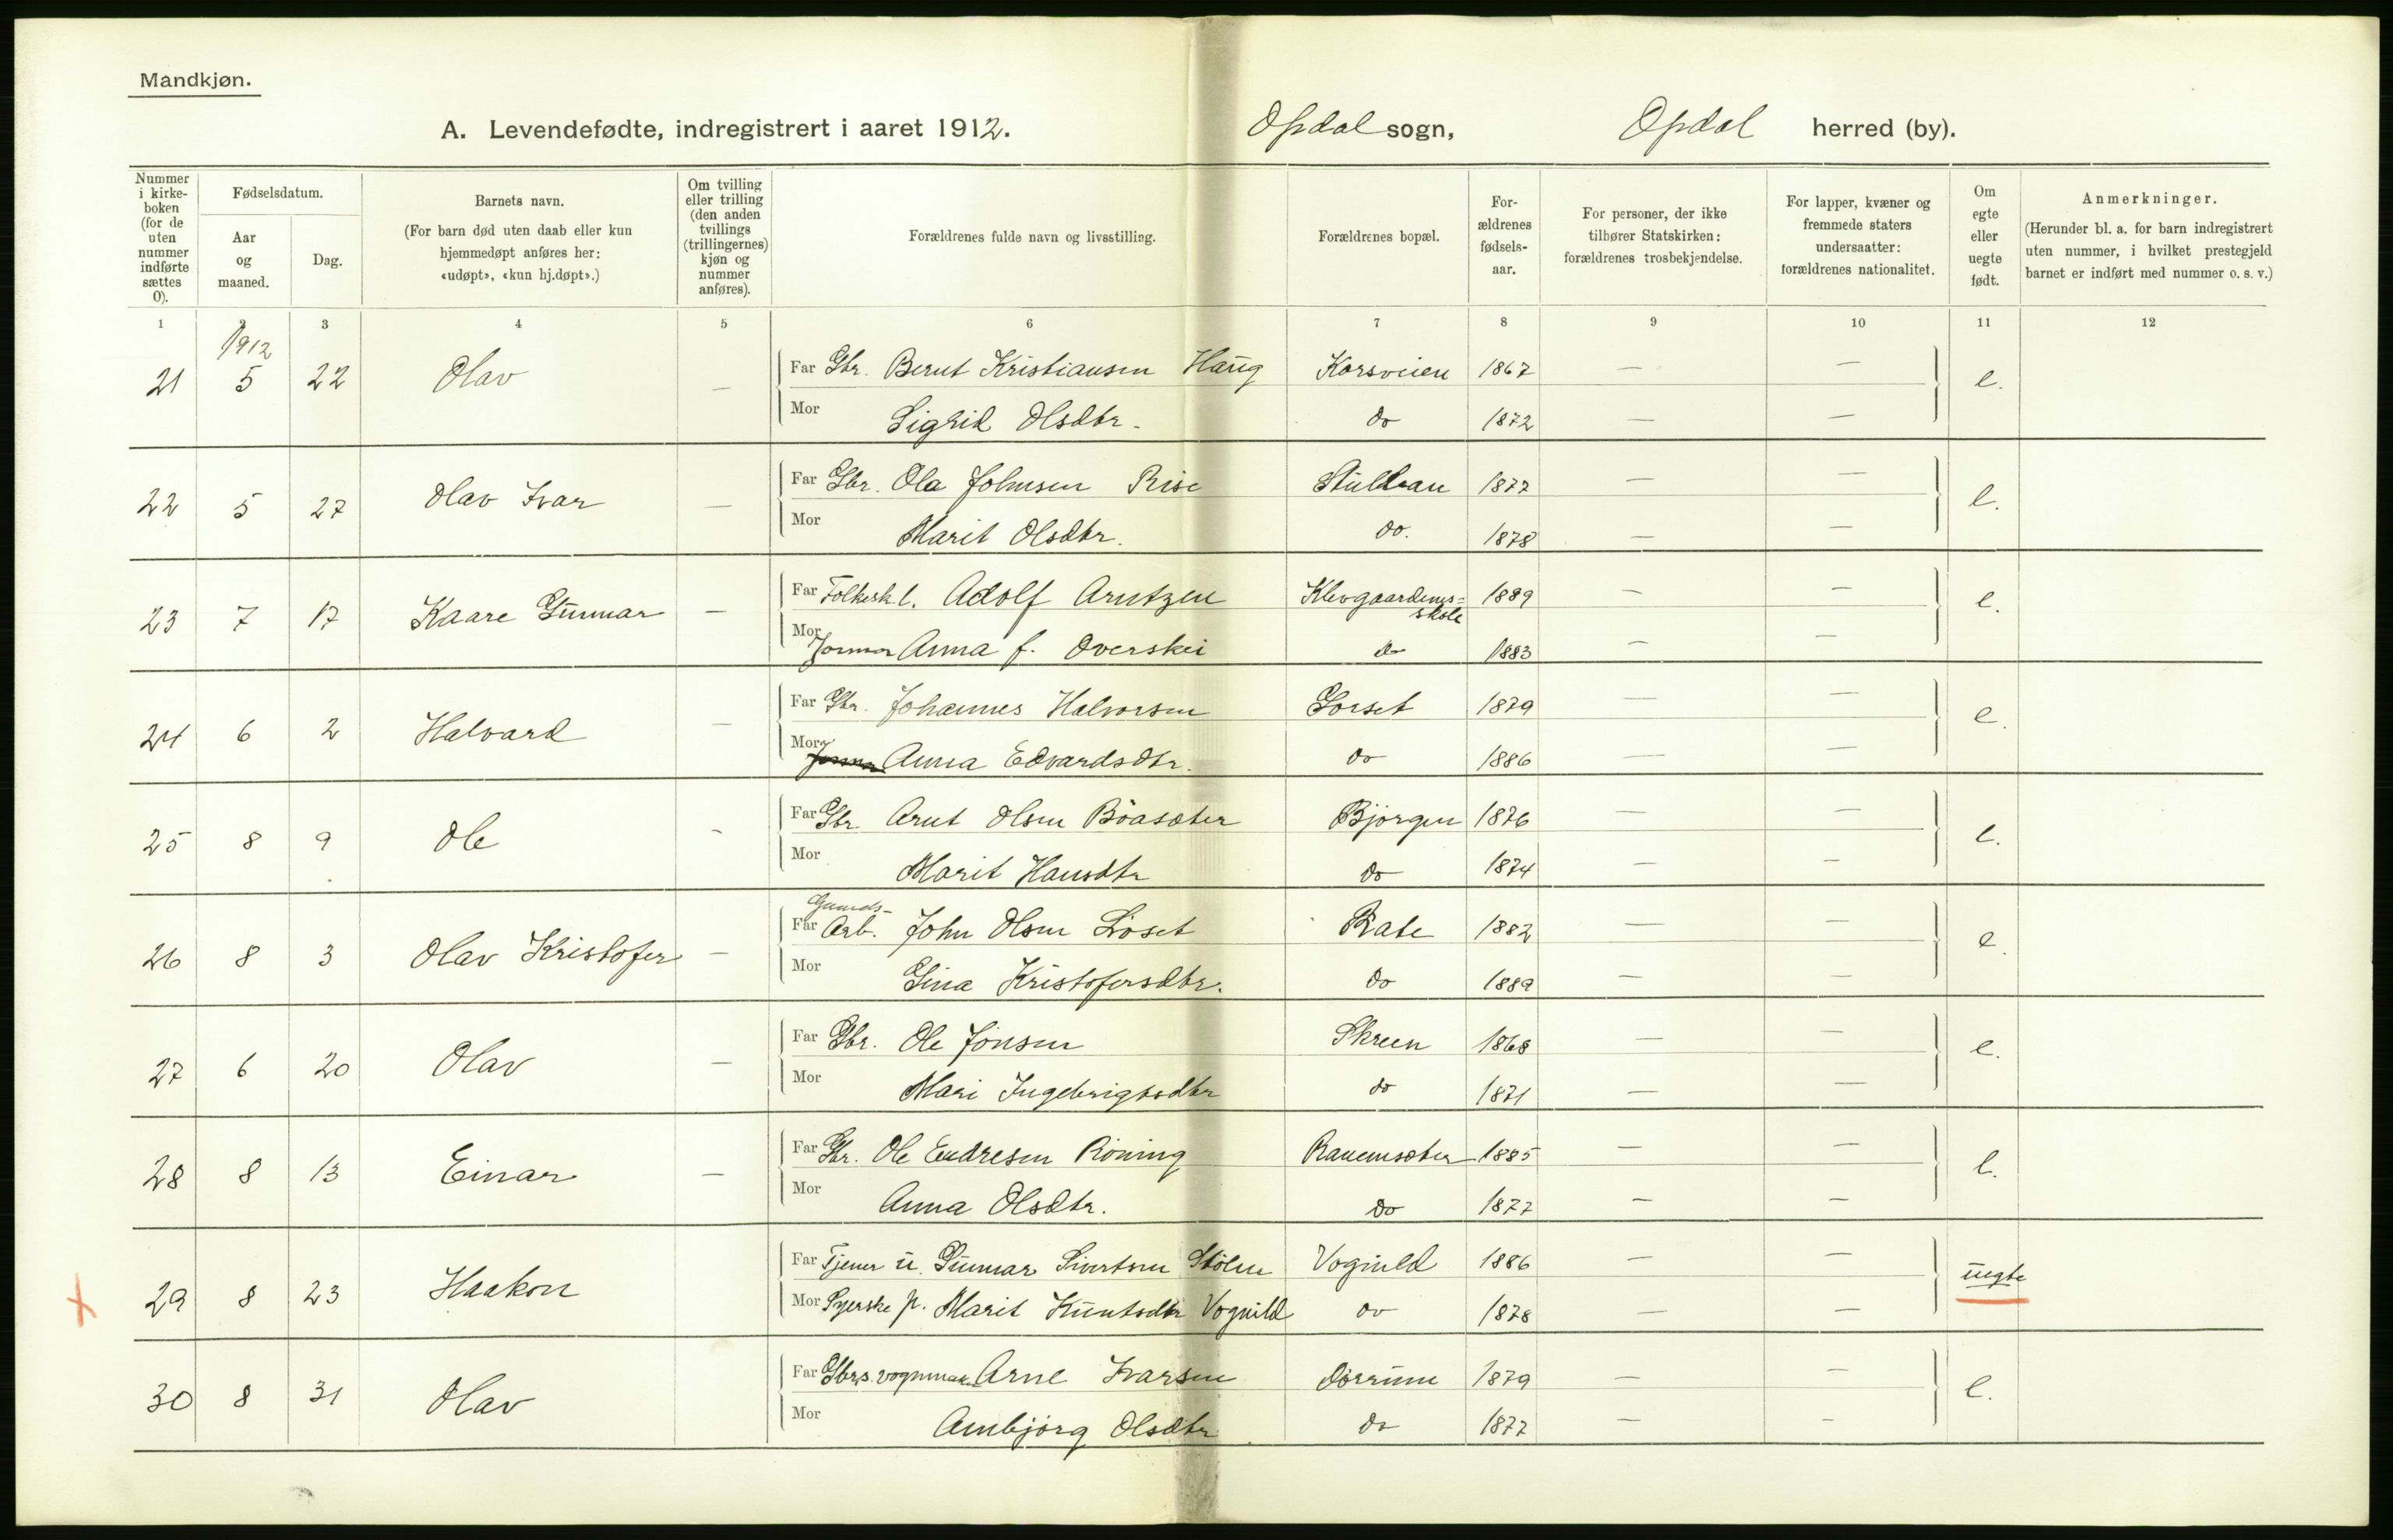 Mandkjøn.
A. Levendefødte, indregistrert i aaret 1912. Opdal sogn, Opdal herred (by).
Nummer i kirke-boken (for de uten nummer indførte sættes 0).
Fødselsdatum.
Aar og maaned.
Dag.
Barnets navn.
(For barn død uten daab eller kun hjemmedøpt anføres her: «udøpt», «kun hj.døpt».)
Om tvilling eller trilling (den anden tvillings (trillingernes) kjøn og nummer anføres).
Forældrenes fulde navn og livsstilling.
Forældrenes bopæl.
For-ældrenes fødsels-aar.
For personer, der ikke tilhører Statskirken: forældrenes trosbekjendelse.
For lapper, kvæner og fremmede staters undersaatter: forældrenes nationalitet.
Om egte eller uegte født.
Anmerkninger.
(Herunder bl. a. for barn indregistrert uten nummer, i hvilket prestegjeld barnet er indført med nummer o. s. v.)
1 2 3 4 5 6 7 8 9 10 11 12
1912
21 5 22 Olav — Far Gbr. Bernt Kristiansen Haug Korsveien 1867 — — e.
Mor Sigrid Olsdtr. do 1872 — —
22 5 27 Olav Ivar — Far Gbr. Ola Johnsen Rise 1877 — — e.
Mor Marit Olsdtr. do. 1878 — —
23 7 17 Kaare Gunnar — Far Folkesk.l. Adolf Arntzen Klevgaardenes= skole 1889 — — e.
Mor Jormor Anna f. Overskei do 1883 — —
24 6 2 Halvard — Far Gbr. Johannes Halvorsen Gorset 1879 — — e.
Mor Jormor Anna Edvardsdtr. do 1886 — —
25 8 9 Ole - Far Gbr. Arnt Olsen Böasæter Bjørgen 1876 — — e.
Mor Marit Hansdtr do 1874 — —
26 8 3 Olav Kristofer — Far Gaards- Arb. John Olsen Löset Rate 1882 — — e.
Mor Gina Kristofersdtr. do 1889 — —
27 6 20 Olav — Far Gbr. Ole Jonsen Skreen 1868 — — e.
Mor Mari Ingebrigtsdtr do 1871 — —
28 8 13 Einar — Far Gbr. Ole Endresen Röning 1885 — — e.
Mor Anna Olsdtr. do 1877 — —
29 8 23 Haakon Far Tjener u. Gunnar Sivertsen Stölen Vognild 1886 — — uegte
Mor Syerske p. Marit Knutsdtr Vognild do 1878 — —
30 8 31 Olav Far Gbrs. vognmak. Arne Ivarsen Dörrum 1879 — — e.
Mor Ambjörg Olsdtr do 1877 — -